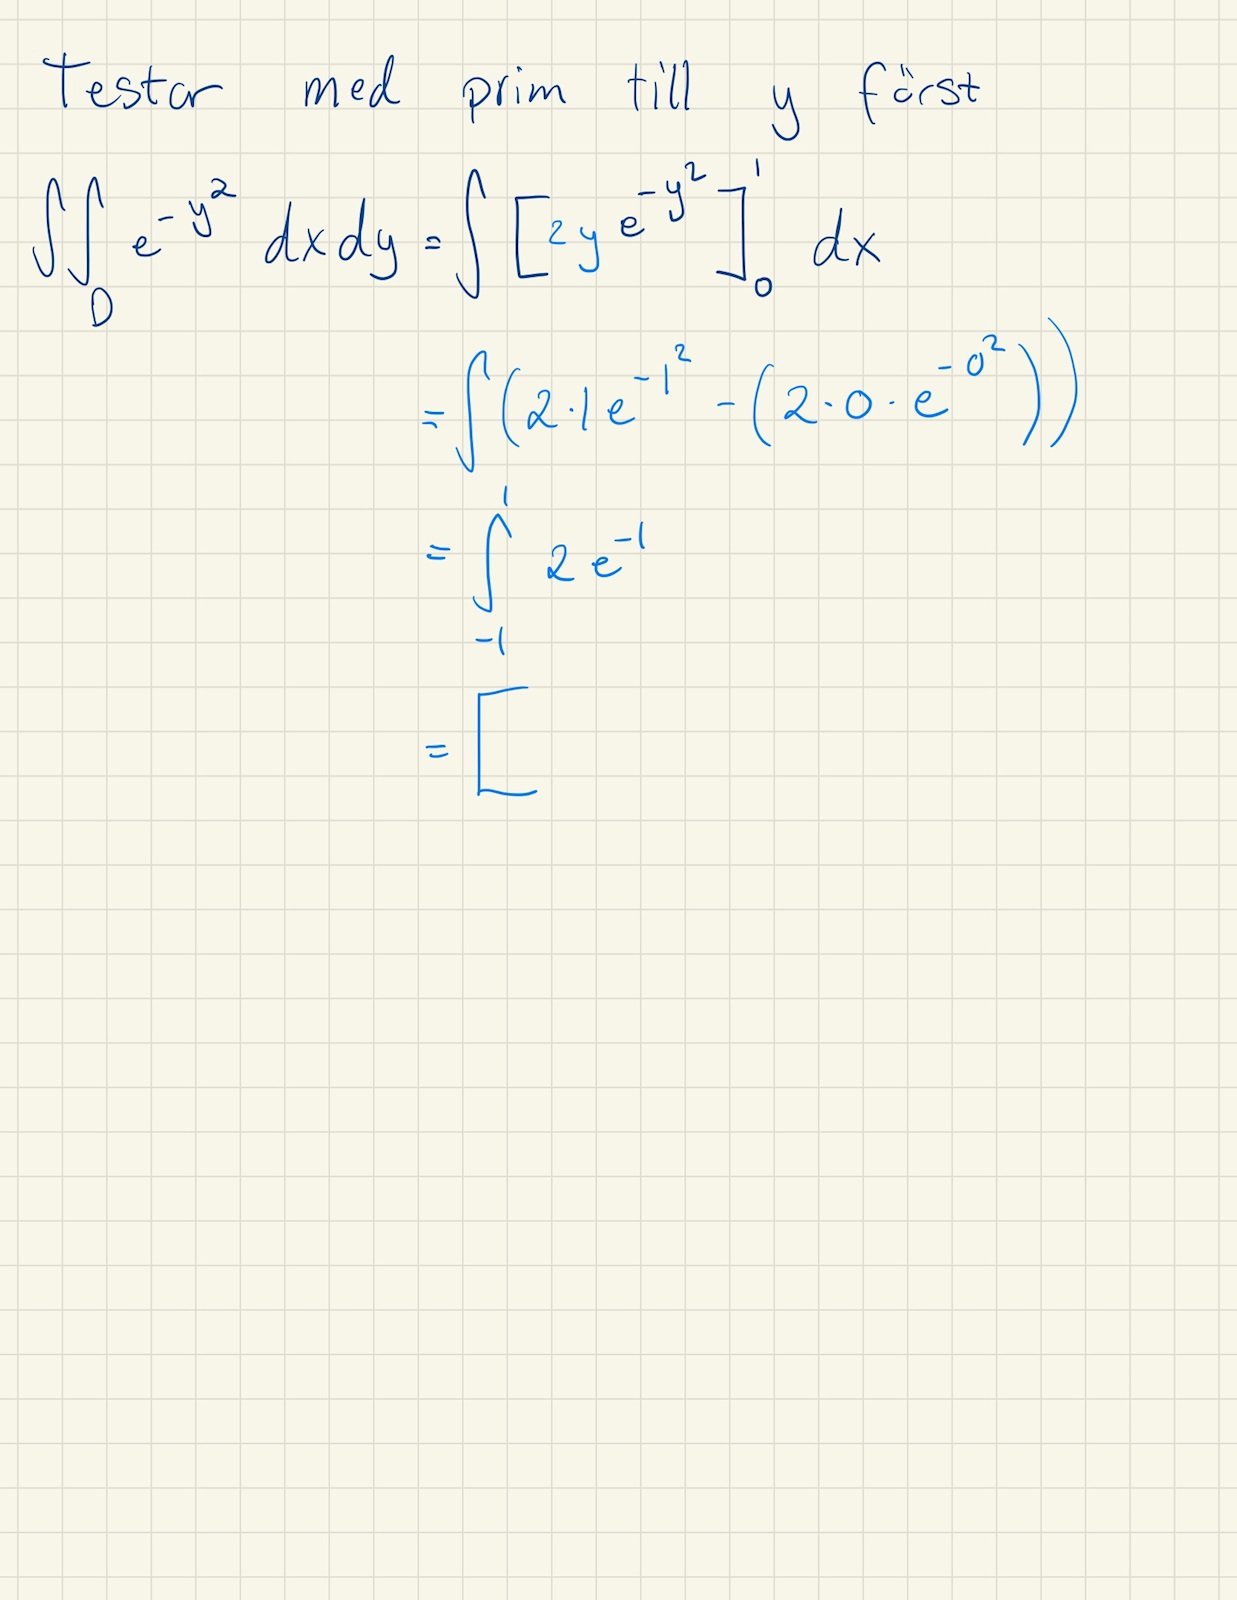 Testar med prim till y först
∫∫_D e^{-y^2} dxdy = ∫ [2y e^{-y^2}]_0^1 dx
= ∫(2·1e^{-1^2} - (2·0·e^{-0^2}))
= ∫_{-1}^{1} 2e^{-1}
= [